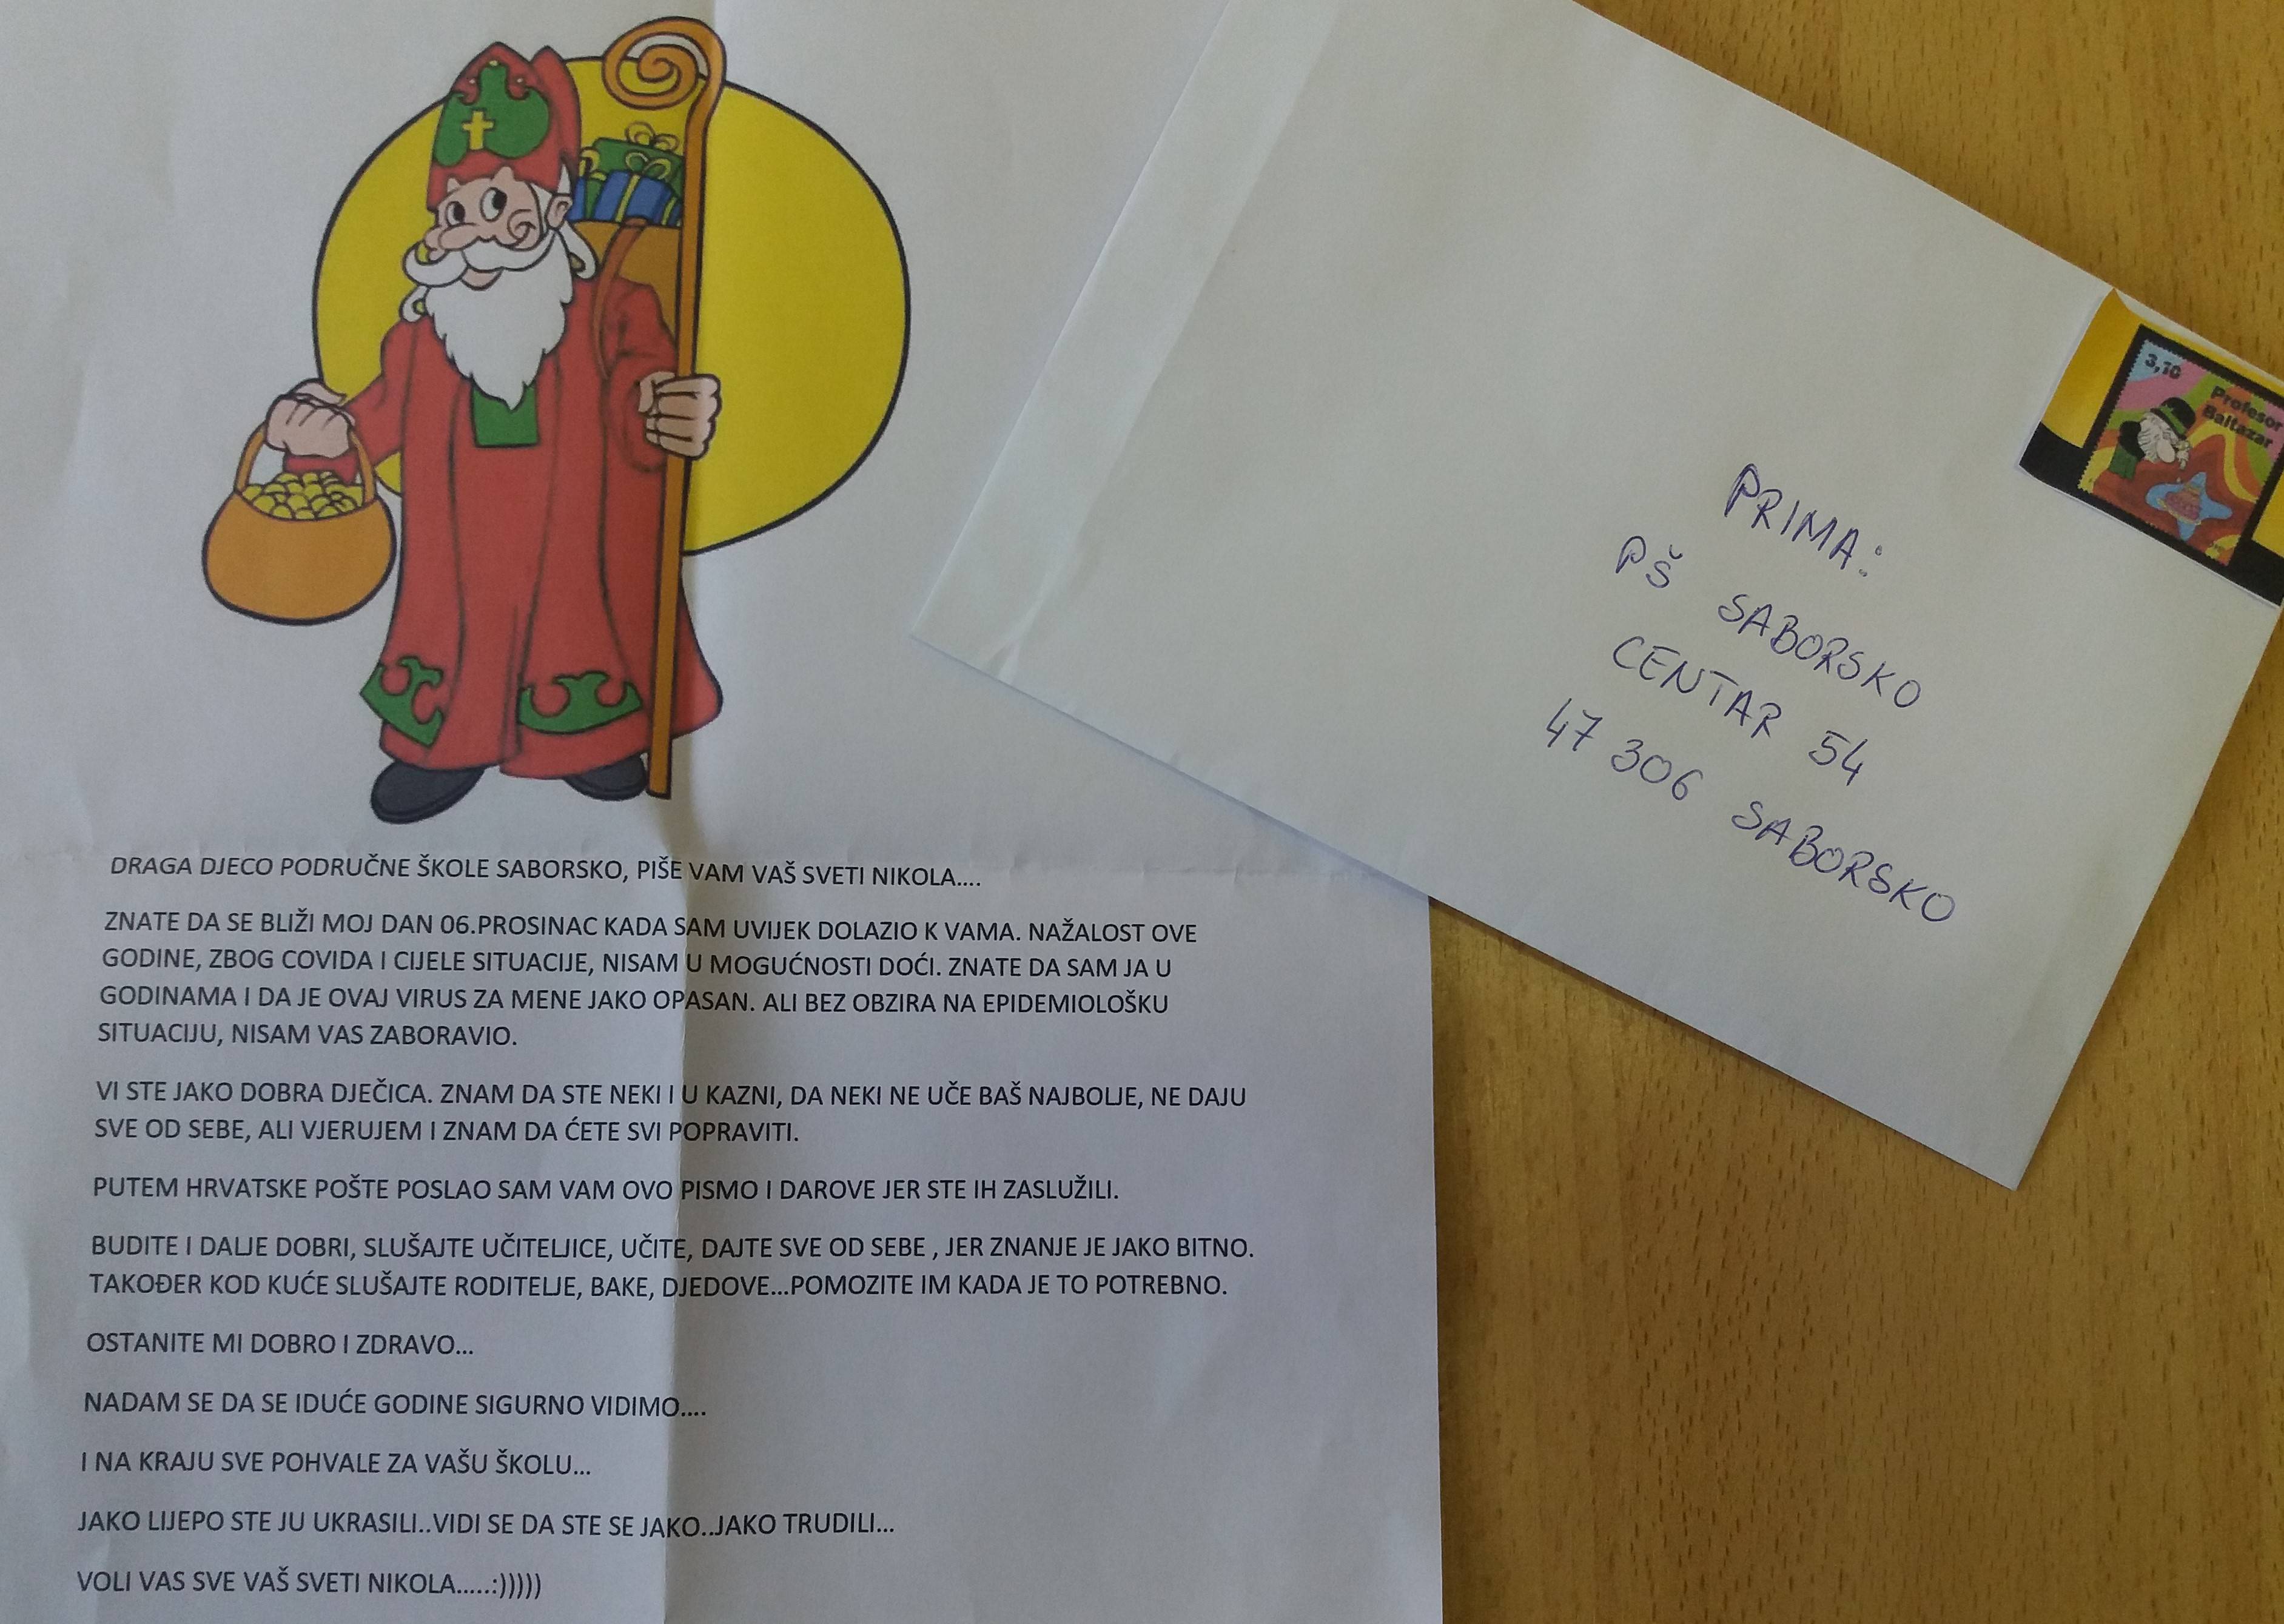 DRAGA DJECO PODRUČNE ŠKOLE SABORSKO, PIŠE VAM VAŠ SVETI NIKOLA....
ZNATE DA SE BLIŽI MOJ DAN 06.PROSINAC KADA SAM UVIJEK DOLAZIO K VAMA. NAŽALOST OVE
GODINE, ZBOG COVIDA I CIJELE SITUACIJE, NISAM U MOGUĆNOSTI DOĆI. ZNATE DA SAM JA U
GODINAMA I DA JE OVAJ VIRUS ZA MENE JAKO OPASAN. ALI BEZ OBZIRA NA EPIDEMIOLOŠKU
SITUACIJU, NISAM VAS ZABORAVIO.
VI STE JAKO DOBRA DJEČICA. ZNAM DA STE NEKI I U KAZNI, DA NEKI NE UČE BAŠ NAJBOLJE, NE DAJU
SVE OD SEBE, ALI VJERUJEM I ZNAM DA ĆETE SVI POPRAVITI.
PUTEM HRVATSKE POŠTE POSLAO SAM VAM OVO PISMO I DAROVE JER STE IH ZASLUŽILI.
BUDITE I DALJE DOBRI, SLUŠAJTE UČITELJICE, UČITE, DAJTE SVE OD SEBE , JER ZNANJE JE JAKO BITNO.
TAKOĐER KOD KUĆE SLUŠAJTE RODITELJE, BAKE, DJEDOVE...POMOZITE IM KADA JE TO POTREBNO.
OSTANITE MI DOBRO I ZDRAVO...
NADAM SE DA SE IDUĆE GODINE SIGURNO VIDIMO....
I NA KRAJU SVE POHVALE ZA VAŠU ŠKOLU...
JAKO LIJEPO STE JU UKRASILI..VIDI SE DA STE SE JAKO..JAKO TRUDILI...
VOLI VAS SVE VAŠ SVETI NIKOLA.....:)))))
3,10
Profesor
Baltazar
PRIMA:
PŠ SABORSKO
CENTAR 54
47 306 SABORSKO